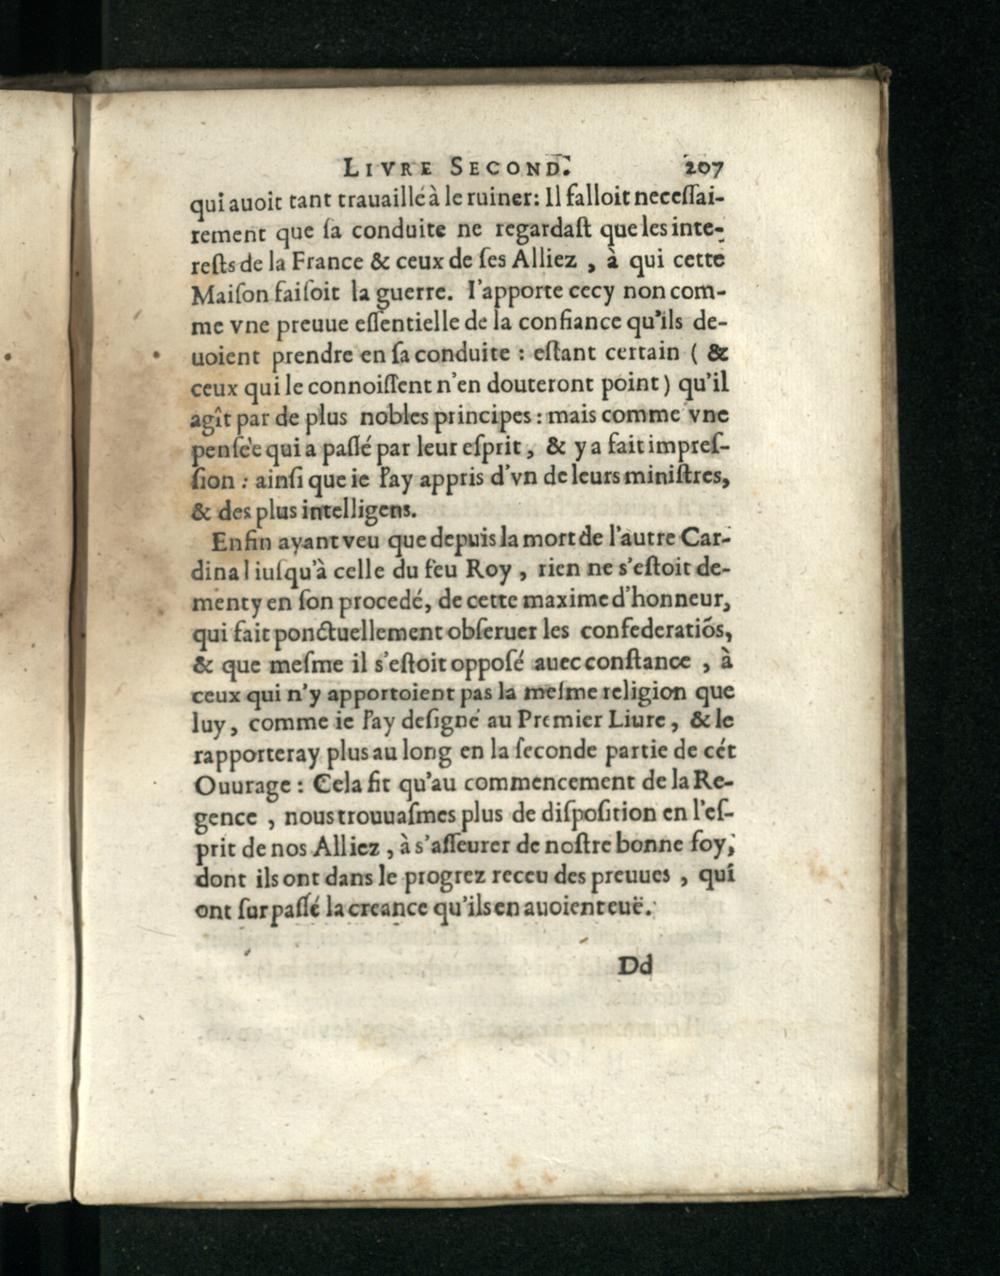 LIVRE SECOND. 207
qui auoit tant trauaillé à le ruiner: Il falloit neceſſai-
rement que ſa conduite ne regardaſt que les inte-
reſts de la France & ceux de ſes Alliez , à qui cette
Maiſon faiſoit la guerre. I'apporte cecy non com-
me vne preuue eſſentielle de la confiance qu'ils de-
uoient prendre en ſa conduite : eſtant certain ( &
ceux qui le connoiſſent n'en douteront point ) qu'il
agît par de plus nobles principes : mais comme vne
penſée qui a paſſé par leur eſprit , & y a fait impreſ-
ſion : ainſi que ie l'ay appris d'vn de leurs miniſtres,
& des plus intelligens.
Enfin ayant veu que depuis la mort de l'autre Car-
dinal iuſqu'à celle du feu Roy , rien ne s'eſtoit de-
menty en ſon procedé, de cette maxime d'honneur,
qui fait ponctuellement obſeruer les confederatiōs,
& que meſme il s'eſtoit oppoſé auec conſtance , à
ceux qui n'y apportoient pas la meſme religion que
luy, comme ie l'ay deſigné au Premier Liure , & le
rapporteray plus au long en la ſeconde partie de cét
Ouurage : Cela fit qu'au commencement de la Re-
gence , nous trouuaſmes plus de diſpoſition en l'eſ-
prit de nos Alliez , à s'aſſeurer de noſtre bonne foy,
dont ils ont dans le progrez receu des preuues , qui
ont ſurpaſſé la creance qu'ils en auoient euë.
Dd